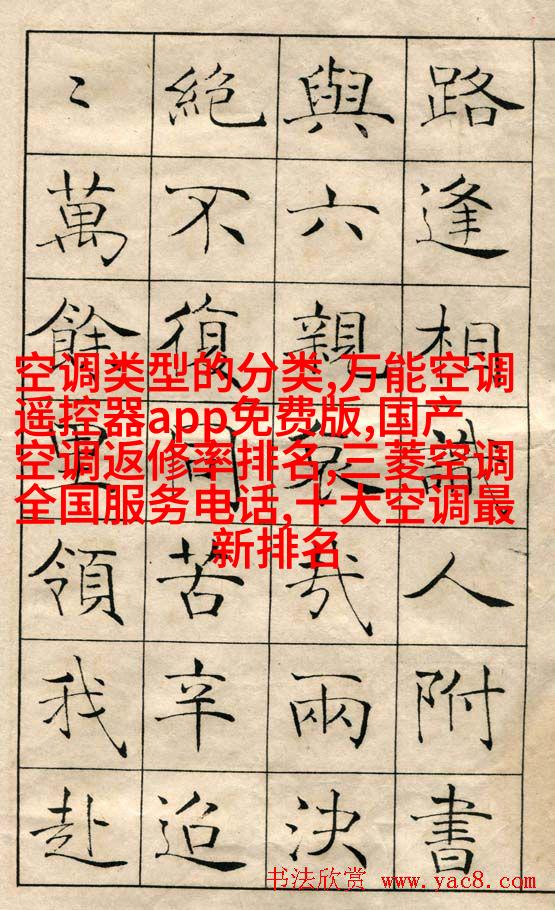 路逢相識人附書
與六親哀哉兩決
絕不復同苦辛迢
〻萬餘里領我赴
空调类型的分类,万能空调
遥控器app免费版,国产
空调返修率排名,三菱空调
全国服务电话,十大空调最
新排名
书法欣赏 www.yac8.com